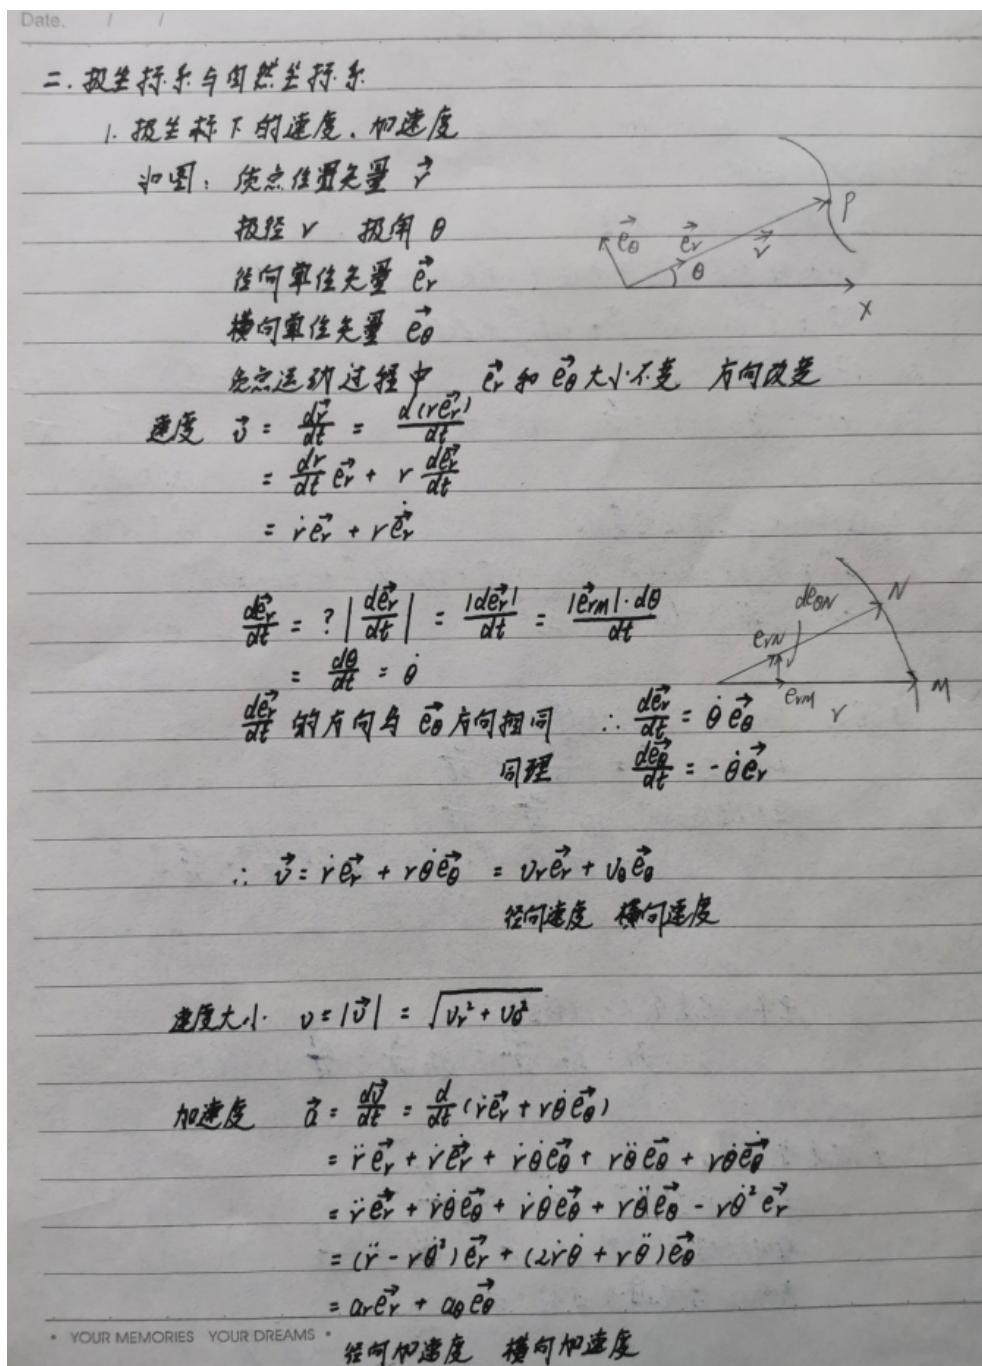 Date. / /
二. 极坐标系与自然坐标系
1. 极坐标下的速度、加速度
如图: 质点位置矢量 $\vec{r}$
极径 r 极角 θ
径向单位矢量 $\vec{e_r}$
横向单位矢量 $\vec{e_\theta}$
质点运动过程中 $\vec{e_r}$ 和 $\vec{e_\theta}$ 大小不变 方向改变
$\vec{e_\theta}$ $\vec{e_r}$ $\vec{r}$ θ P X
速度 $\vec{v} = \frac{d\vec{r}}{dt} = \frac{d(r\vec{e_r})}{dt}$
$= \frac{dr}{dt}\vec{e_r} + r\frac{d\vec{e_r}}{dt}$
$= \dot{r}\vec{e_r} + r\dot{\vec{e_r}}$
$\frac{d\vec{e_r}}{dt} = ? \left|\frac{d\vec{e_r}}{dt}\right| = \frac{|d\vec{e_r}|}{dt} = \frac{|\vec{e_{rM}}| \cdot d\theta}{dt}$
$= \frac{d\theta}{dt} = \dot{\theta}$
$de_{\theta N}$ N $e_{rN}$ $e_{rM}$ r M
$\frac{d\vec{e_r}}{dt}$ 的方向与 $\vec{e_\theta}$ 方向相同 $\therefore \frac{d\vec{e_r}}{dt} = \dot{\theta}\vec{e_\theta}$
同理 $\frac{d\vec{e_\theta}}{dt} = -\dot{\theta}\vec{e_r}$
$\therefore \vec{v} = \dot{r}\vec{e_r} + r\dot{\theta}\vec{e_\theta} = v_r\vec{e_r} + v_\theta\vec{e_\theta}$
径向速度 横向速度
速度大小 $v = |\vec{v}| = \sqrt{v_r^2 + v_\theta^2}$
加速度 $\vec{a} = \frac{d\vec{v}}{dt} = \frac{d}{dt}(\dot{r}\vec{e_r} + r\dot{\theta}\vec{e_\theta})$
$= \ddot{r}\vec{e_r} + \dot{r}\dot{\vec{e_r}} + \dot{r}\dot{\theta}\vec{e_\theta} + r\ddot{\theta}\vec{e_\theta} + r\dot{\theta}\dot{\vec{e_\theta}}$
$= \ddot{r}\vec{e_r} + \dot{r}\dot{\theta}\vec{e_\theta} + \dot{r}\dot{\theta}\vec{e_\theta} + r\ddot{\theta}\vec{e_\theta} - r\dot{\theta}^2\vec{e_r}$
$= (\ddot{r} - r\dot{\theta}^2)\vec{e_r} + (2\dot{r}\dot{\theta} + r\ddot{\theta})\vec{e_\theta}$
$= a_r\vec{e_r} + a_\theta\vec{e_\theta}$
• YOUR MEMORIES YOUR DREAMS •
径向加速度 横向加速度